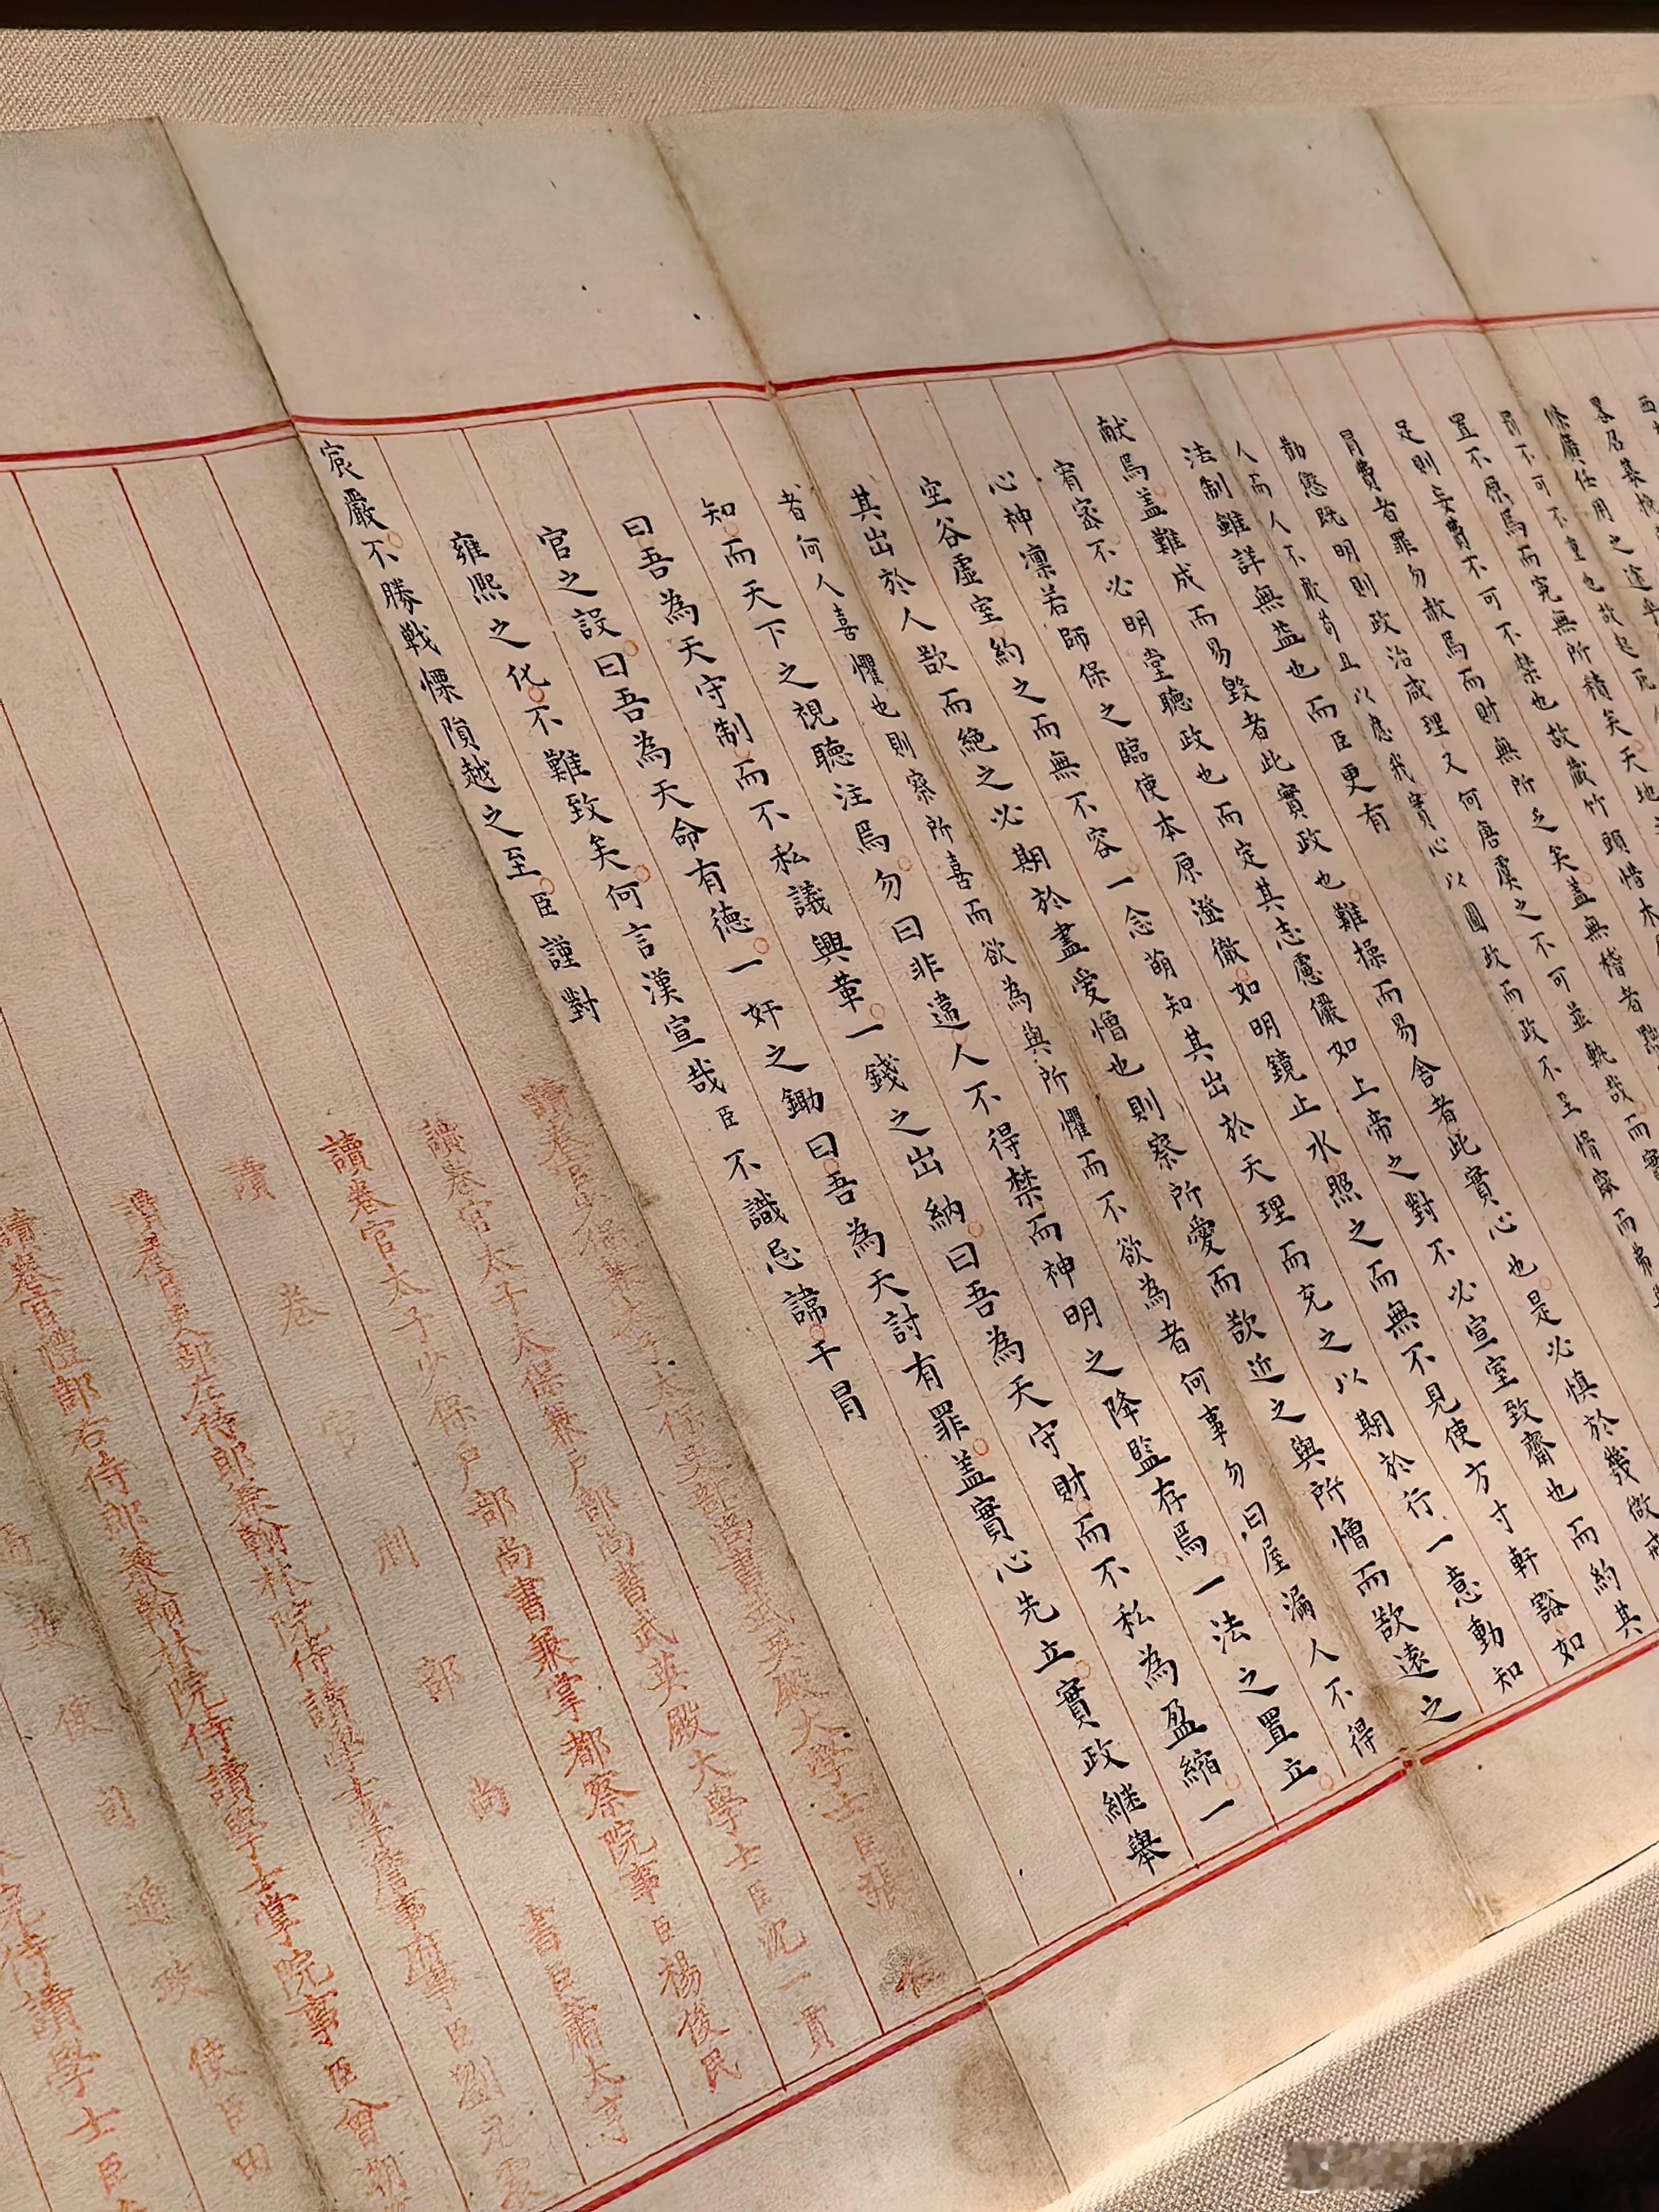 畧召募
條廣任用之途
罰不可不重也故起死
置不原焉而究無所積矣天地
足則妄費不可不禁也故歲竹頭惜木
冒費者罪勿赦焉而財無所乏矣蓋無稽者
勸懲既明則政治咸理又何唐虞之不可並軌哉而實
人而人不敢苟且以應我實心以圖政而政不至惰窳而弗
法制雖詳無益也而臣更有
献焉蓋難成而易毀者此實政也難操而易舍者此實心也是必慎於幾微戒
宥密不必明堂聽政也而定其志慮儼如上帝之對不必宣室致齋也而約其
心神凜若師保之臨使本原澄徹如明鏡止水照之而無不見使方寸軒豁如
空谷虛室約之而無不容一念萌知其出於天理而充之以期於行一意動知
其出於人欲而絶之必期於盡愛憎也則察所愛而欲近之與所憎而欲遠之
者何人喜懼也則察所喜而欲為與所懼而不欲為者何事勿曰屋漏人不得
知而天下之視聽注焉勿曰非違人不得禁而神明之降監存焉一法之置立
曰吾為天守制而不私議興革一錢之出納曰吾為天守財而不私為盈縮一
官之設曰吾為天命有德一奸之鋤曰吾為天討有罪蓋實心先立實政継舉
雍熙之化不難致矣何言漢宣哉臣不識忌諱干冒
宸嚴不勝戰慄隕越之至臣謹對
讀卷官少保兼太子太保吏部尚書武英殿大學士臣張位
讀卷官太子太保兼戶部尚書武英殿大學士臣沈一貫
讀卷官太子少保戶部尚書兼掌都察院事臣楊俊民
讀卷官刑部尚書臣蕭大亨
讀卷官吏部左侍郎兼翰林院侍讀學士掌詹事府事臣劉元震
讀卷官禮部右侍郎兼翰林院侍讀學士掌院事臣曾朝
通政使司通政使臣田
院侍讀學士臣